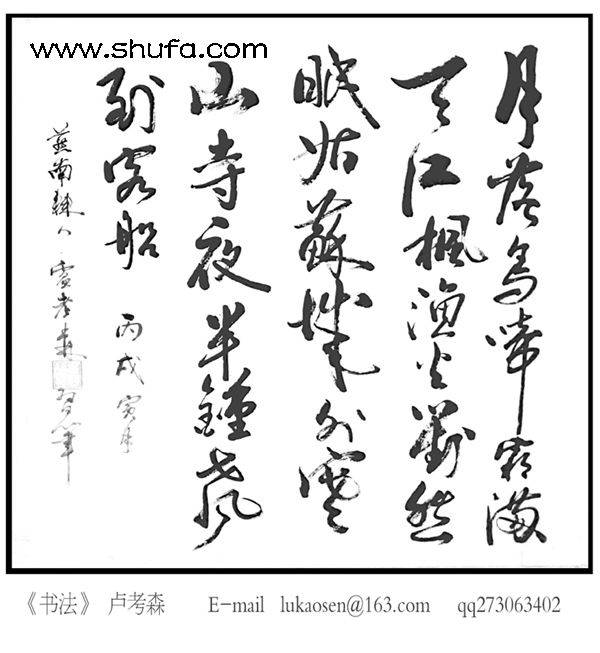 www.shufa.com
月落烏啼霜滿
天江楓漁火對愁
眠姑蘇城外寒
山寺夜半鐘聲
到客船
丙戌寅月
燕南 盧考森
《书法》 卢考森 E-mail lukaosen@163.com qq273063402